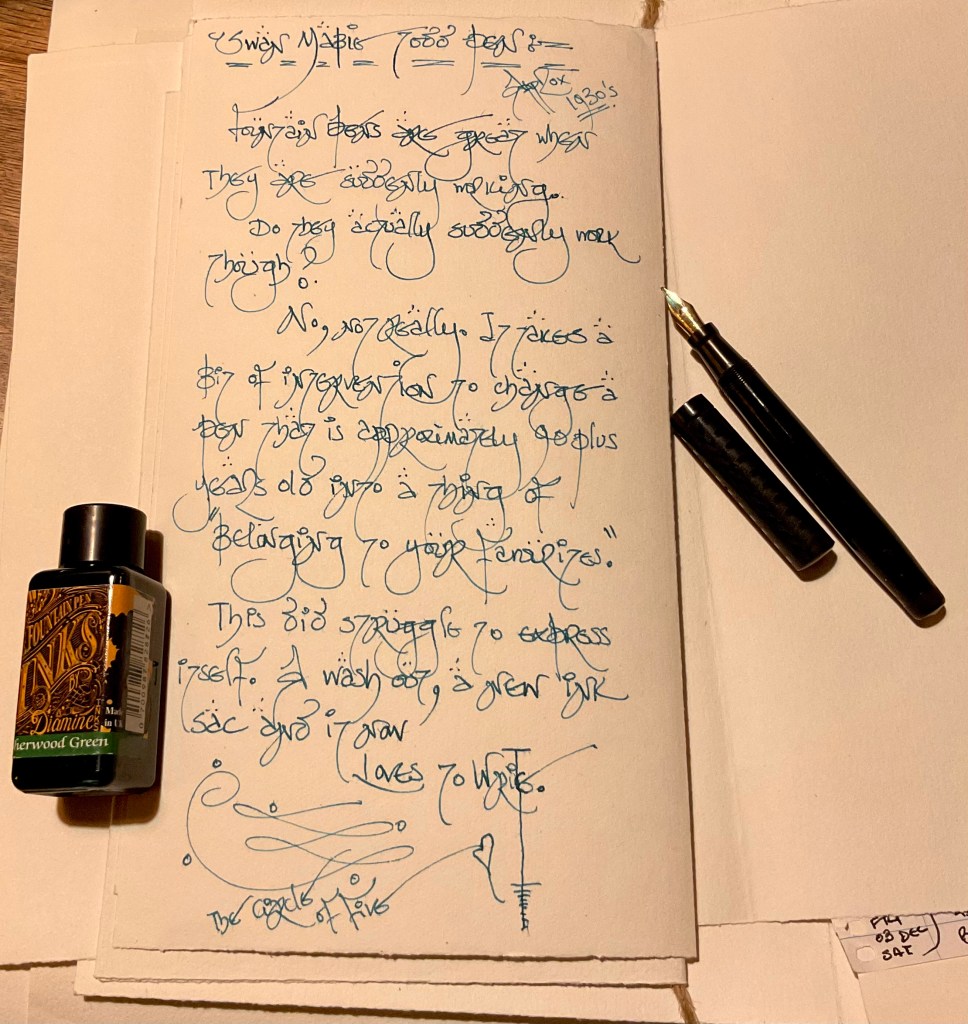 "Swan Mabie Todd Pen:-
1930's
Fountain Pens are great when
They are suddenly working.
Do they actually suddenly work
Though?
No, not really. It takes a
Bit of intervention to change a
Pen that is approximately 90 plus
years old into a thing of
"Belonging to your favourites."
This did struggle to express
itself. A wash out, a new ink
sac and it now
Loves to Write.
The Circle
of Five
FOUNTAIN PEN
INKS
BY
Diamine
herwood Green
Mad
in U
FRI
03 DEC
SAT